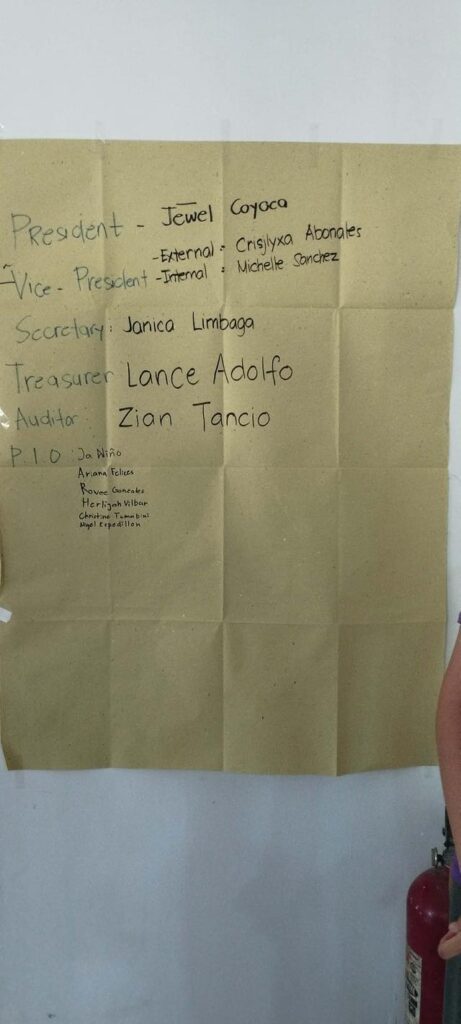 President - Jewel Coyoca
-External : Crisjlyxa Abonales
Vice - President -Internal : Michelle Sanchez
Secretary : Janica Limbaga
Treasurer Lance Adolfo
Auditor : Zian Tancio
P.I.O : Ja Niño
Ariana Felices
Rovee Gonzales
Herlijah Vilbar
Christine
Nigel Espedillon